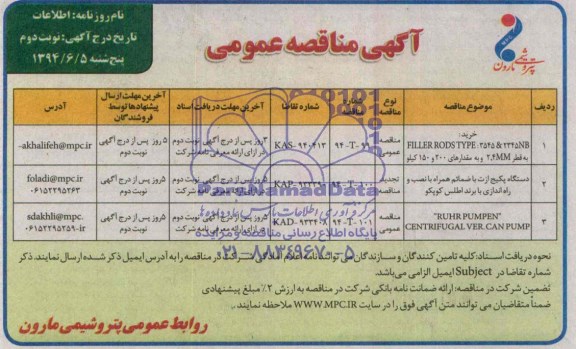 نام روزنامه: اطلاعات
تاریخ درج آگهی: نوبت دوم
پنج شنبه ۱۳۹۴/۶/۵
آگهی مناقصه عمومی
پتروشیمی مارون
ردیف
موضوع مناقصه
نوع مناقصه
شماره مناقصه
شماره تقاضا
آخرین مهلت دریافت اسناد
آخرین مهلت ارسال پیشنهادها توسط فروشندگان
آدرس
۱
خرید:
FILLER RODS TYPE: ۳۵۴۵ & ۲۲۴۵NB
به قطر ۲,۴MM و به مقدارهای ۲۰۰ و ۱۵۰ کیلو
مناقصه عمومی
۹۴-T-۹۹
KAS-۹۴۰۴۱۳
۳ روز پس از درج آگهی نوبت دوم
در ازای ارائه معرفی نامه شرکت
۵ روز پس از درج آگهی
نوبت دوم
-akhalifeh@mpc.ir
۲
دستگاه پکیج ازت با ضمائم همراه با نصب و
راه اندازی با برند اطلس کوپکو
تجدید مناقصه
۵ روز پس از درج آگهی نوبت دوم
در ازای ارائه معرفی نامه شرکت
۵ روز پس از درج آگهی
نوبت دوم
foladi@mpc.ir
۰۶۱۵۲۲۹۵۲۶۳
۳
"RUHR PUMPEN"
CENTRIFUGAL VER. CAN PUMP
مناقصه عمومی
۹۴-T-۱۰۱
۵ روز پس از درج آگهی نوبت دوم
در ازای ارائه معرفی نامه شرکت
۵ روز پس از درج آگهی
نوبت دوم
sdakhli@mpc.
۰۶۱۵۲۲۹۵۲۵۹-ir
ParsNamadData
مرکز فرآوری اطلاعات پارس نماد داده ها
پایگاه اطلاع رسانی مناقصه و مزایده
۰۲۱-۸۸۳۴۹۶۷۰-۵
نحوه دریافت اسناد: کلیه تامین کنندگان و سازندگان می توانند نامه اعلام آمادگی شرکت در مناقصه را به آدرس ایمیل ذکر شده ارسال نمایند. ذکر
شماره تقاضا در Subject ایمیل الزامی می باشد.
تضمین شرکت در مناقصه: ارائه ضمانت نامه بانکی شرکت در مناقصه به ارزش ۲٪ مبلغ پیشنهادی
ضمناً متقاضیان می توانند متن آگهی فوق را در سایت WWW.MPC.IR ملاحظه نمایند.
روابط عمومی پتروشیمی مارون